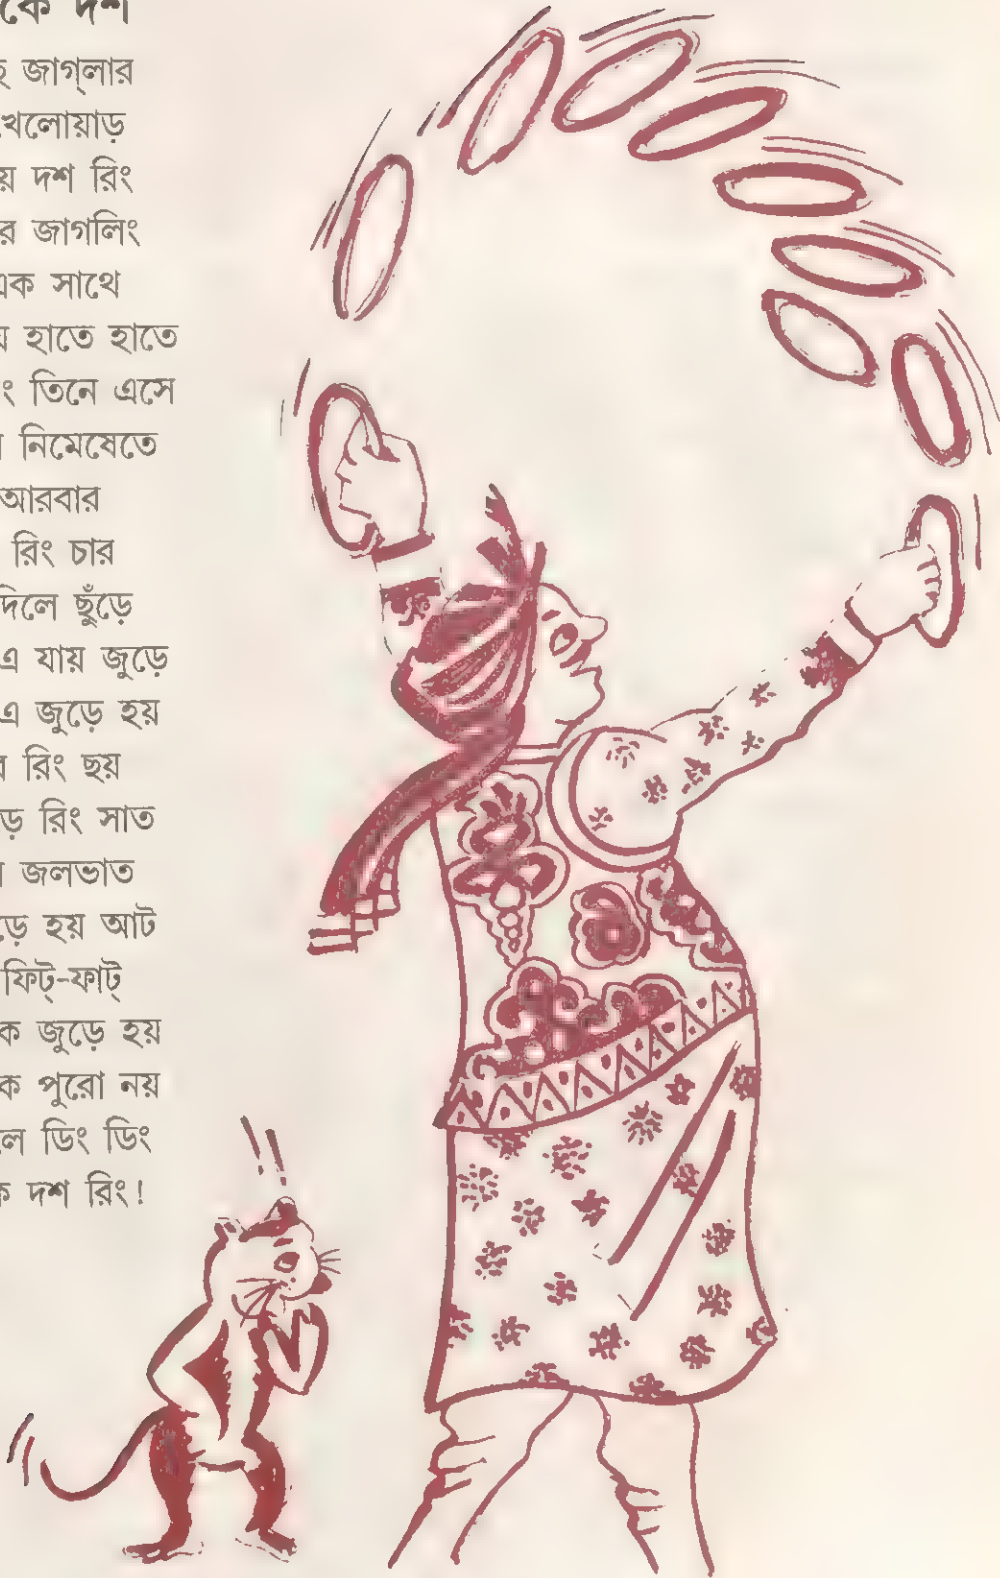 কে দশ
জাগ্‌লার
খেলোয়াড়
দশ রিং
জাগলিং
এক সাথে
হাতে হাতে
তিনে এসে
নিমেষেতে
আরবার
রিং চার
দিলে ছুঁড়ে
এ যায় জুড়ে
এ জুড়ে হয়
রিং ছয়
রিং সাত
জলভাত
হয় আট
ফিট্-ফাট্
জুড়ে হয়
পুরো নয়
ডিং ডিং
দশ রিং!